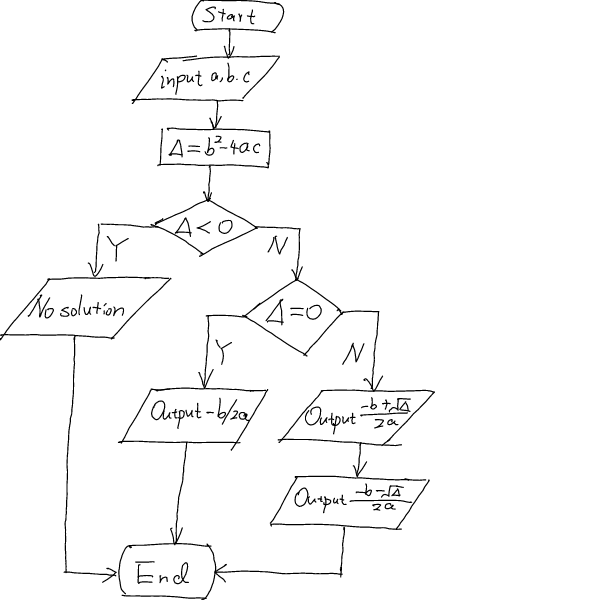 Start
input a,b.c
Δ=b²-4ac
Δ<0
Y
N
No solution
Δ=0
Y
N
Output -b/2a
Output (-b+√Δ)/2a
Output (-b-√Δ)/2a
End